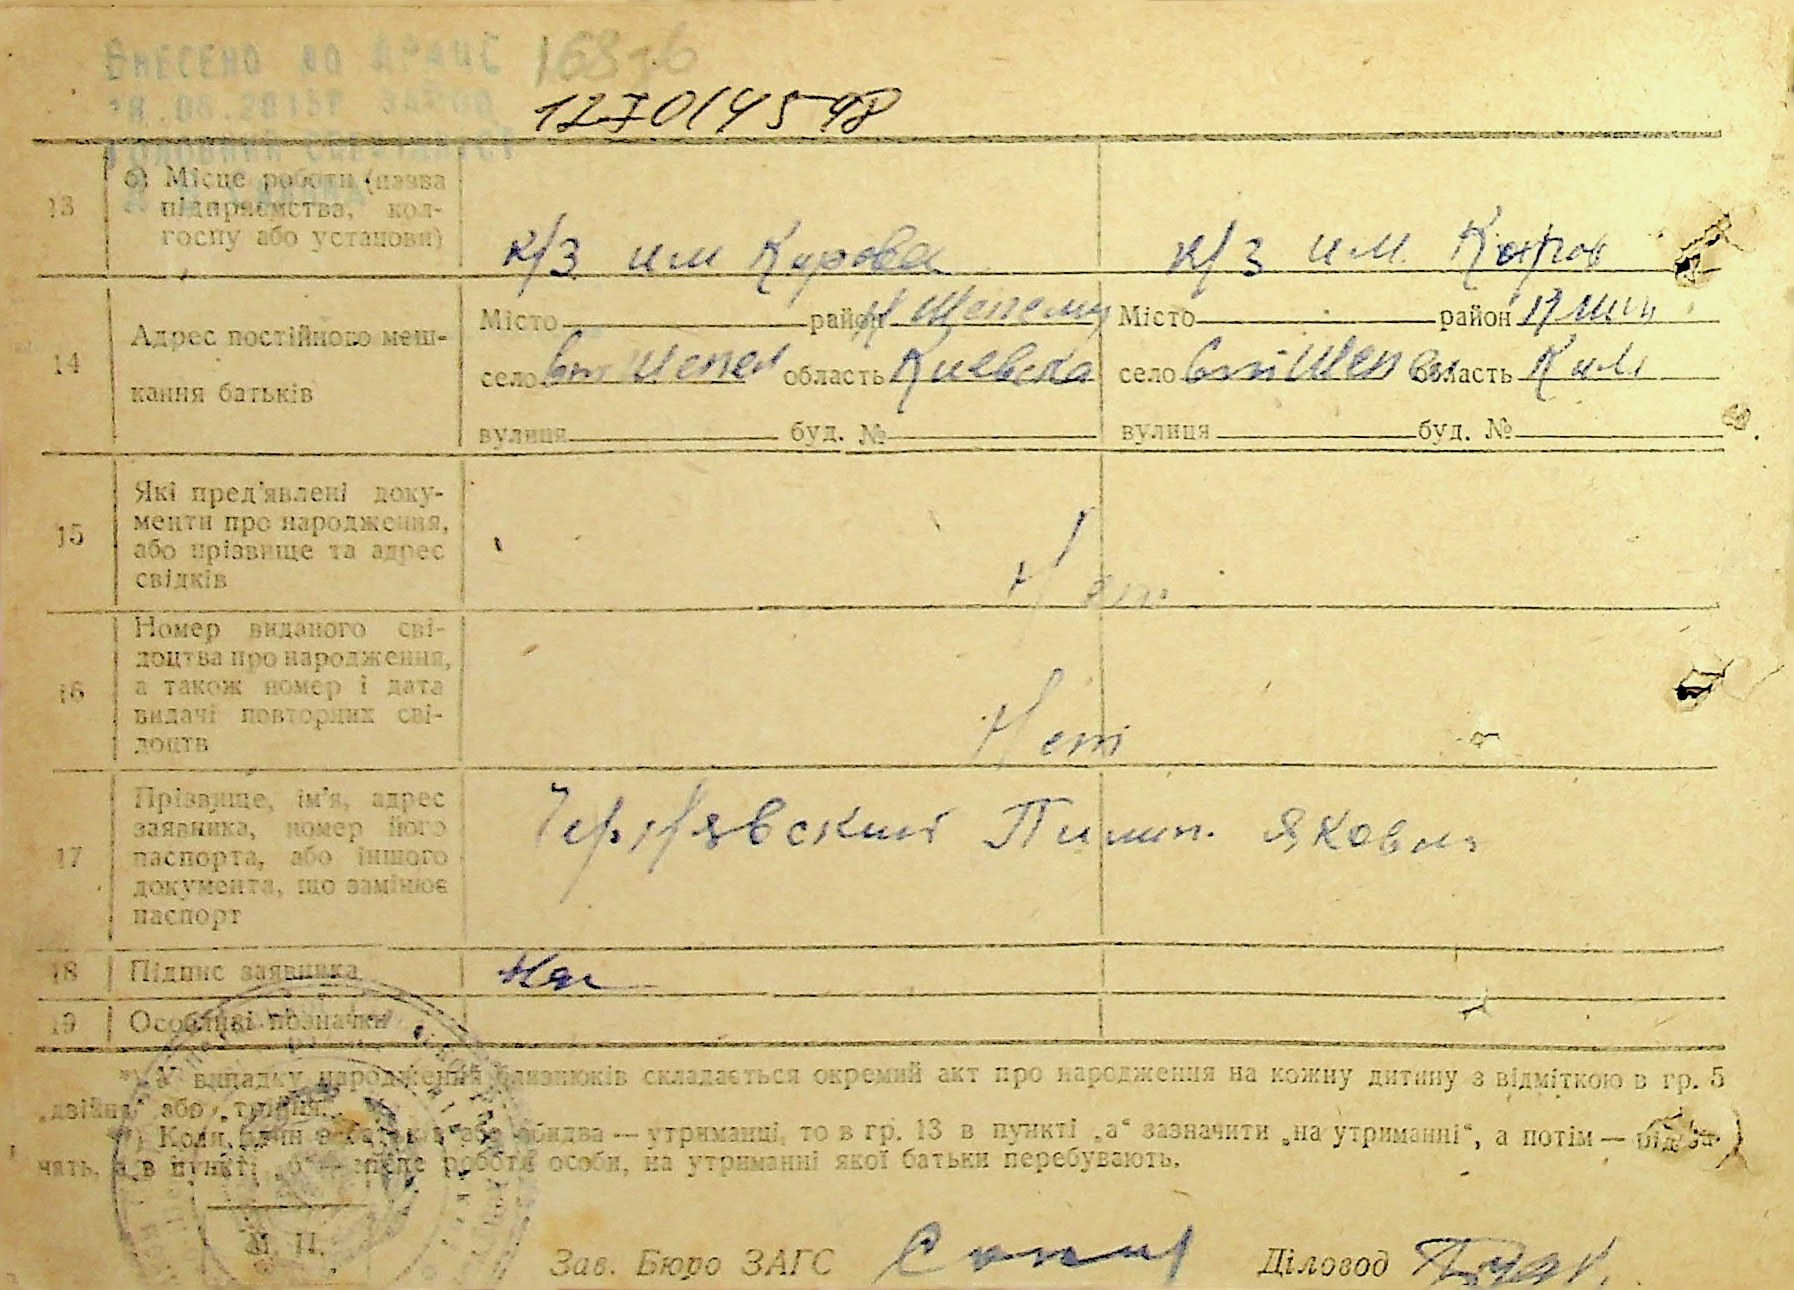 ВНЕСЕНО ДО ДРАЦС 168зб
1270145
13 б) Місце роботи (назва
підприємства, кол-
госпу або установи)
к/з им Кирова к/з им. Киров
14 Адрес постійного меш-
кання батьків
Місто район Місто район
село область Киевска село область Кий
вулиця буд. № вулиця буд. №
15 Які пред'явлені доку-
менти про народження,
або прізвище та адрес
свідків
Нет
16 Номер виданого сві-
доцтва про народження,
а також номер і дата
видачі повторних сві-
доцтв
Нет
17 Прізвище, ім'я, адрес
заявника, номер його
паспорта, або іншого
документа, що замінює
паспорт
Чернявский Пилип. Яковл
18 Підпис заявника
19 Особливі позначки
*) У випадку народження близнюків складається окремий акт про народження на кожну дитину з відміткою в гр. 5
„двійня“ або „трійня“.
Коли один з батьків або обидва — утриманці, то в гр. 13 в пункті „а“ зазначити „на утриманні“, а потім —
в пункті „б“ — місце роботи особи, на утриманні якої батьки перебувають.
М. П.
Зав. Бюро ЗАГС Діловод